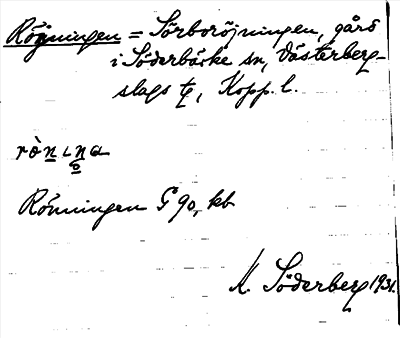 Röjningen = Sörboröjningen, gård
i Söderbärke sn, Västerberg-
slags tg, Kopp. l.
rò̀nɩna
Rönningen G 90, kb
M. Söderberg 1931.